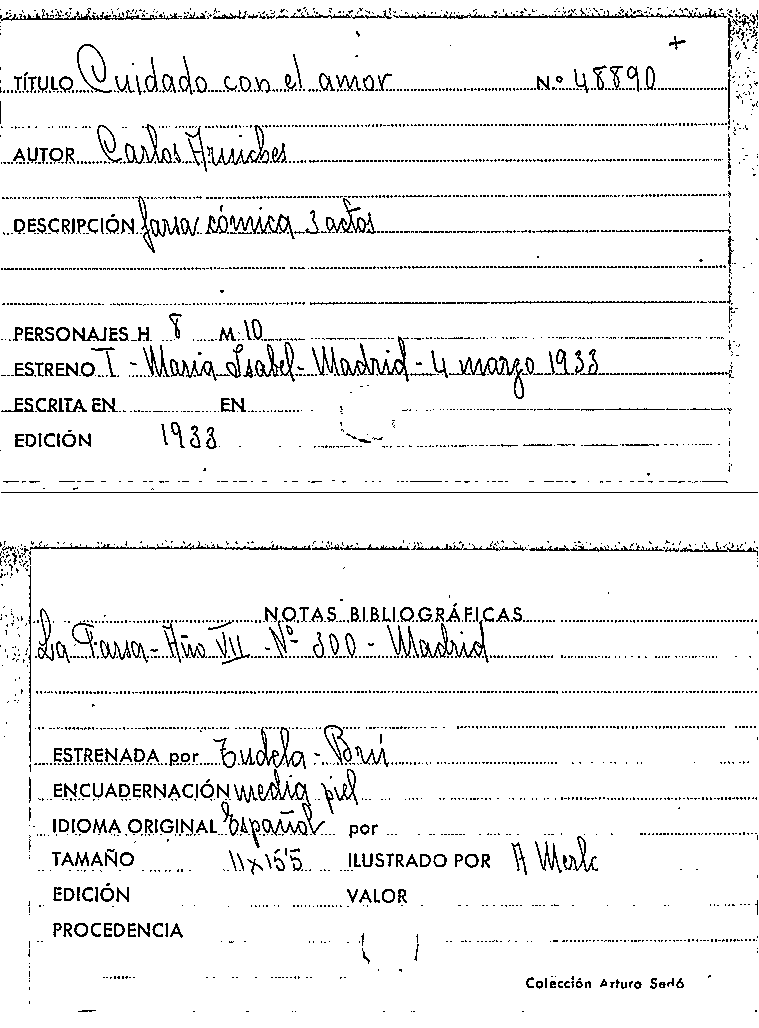 +
TÍTULO Cuidado con el amor Nº 48890
AUTOR Carlos Arniches
DESCRIPCIÓN farsa cómica 3 actos
PERSONAJES H 8 M 10
ESTRENO T - Maria Isabel - Madrid - 4 marzo 1933
ESCRITA EN EN
EDICIÓN 1933
NOTAS BIBLIOGRÁFICAS
La Farsa - Año VII - Nº 300 - Madrid
ESTRENADA por Tudela - Brú
ENCUADERNACIÓN media piel
IDIOMA ORIGINAL Español por
TAMAÑO 11x15'5 ILUSTRADO POR A Merlo
EDICIÓN VALOR
PROCEDENCIA
Colección Arturo Sedó